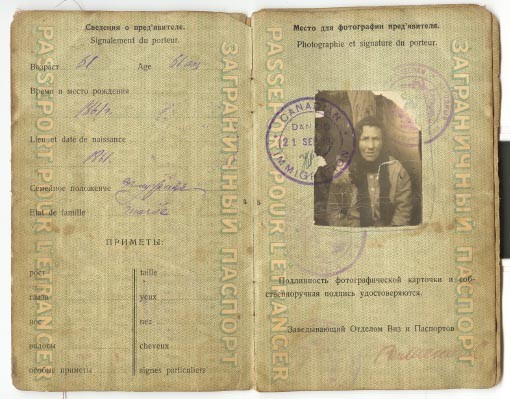 Сведения о пред'явителе.
Signalement du porteur.
Возраст 61 Age 61 ans
Время и место рождения
1861 г.
Lieu et date de naissance
1861.
Семейное положение
Etat de famille
ПРИМЕТЫ:
рост taille
глаза yeux
нос nez
волосы cheveux
особые приметы signes particuliers
PASSEPORT POUR L'ETRANGER
ЗАГРАНИЧНЫЙ ПАСПОРТ
Место для фотографии пред'явителя.
Photographie et signature du porteur.
CANADIAN
21 SEP
IMMIGRATION
Подлинность фотографической карточки и соб-
ственноручная подпись удостоверяются.
Заведывающий Отделом Виз и Паспортов
PASSEPORT POUR L'ETRANGER
ЗАГРАНИЧНЫЙ ПАСПОРТ